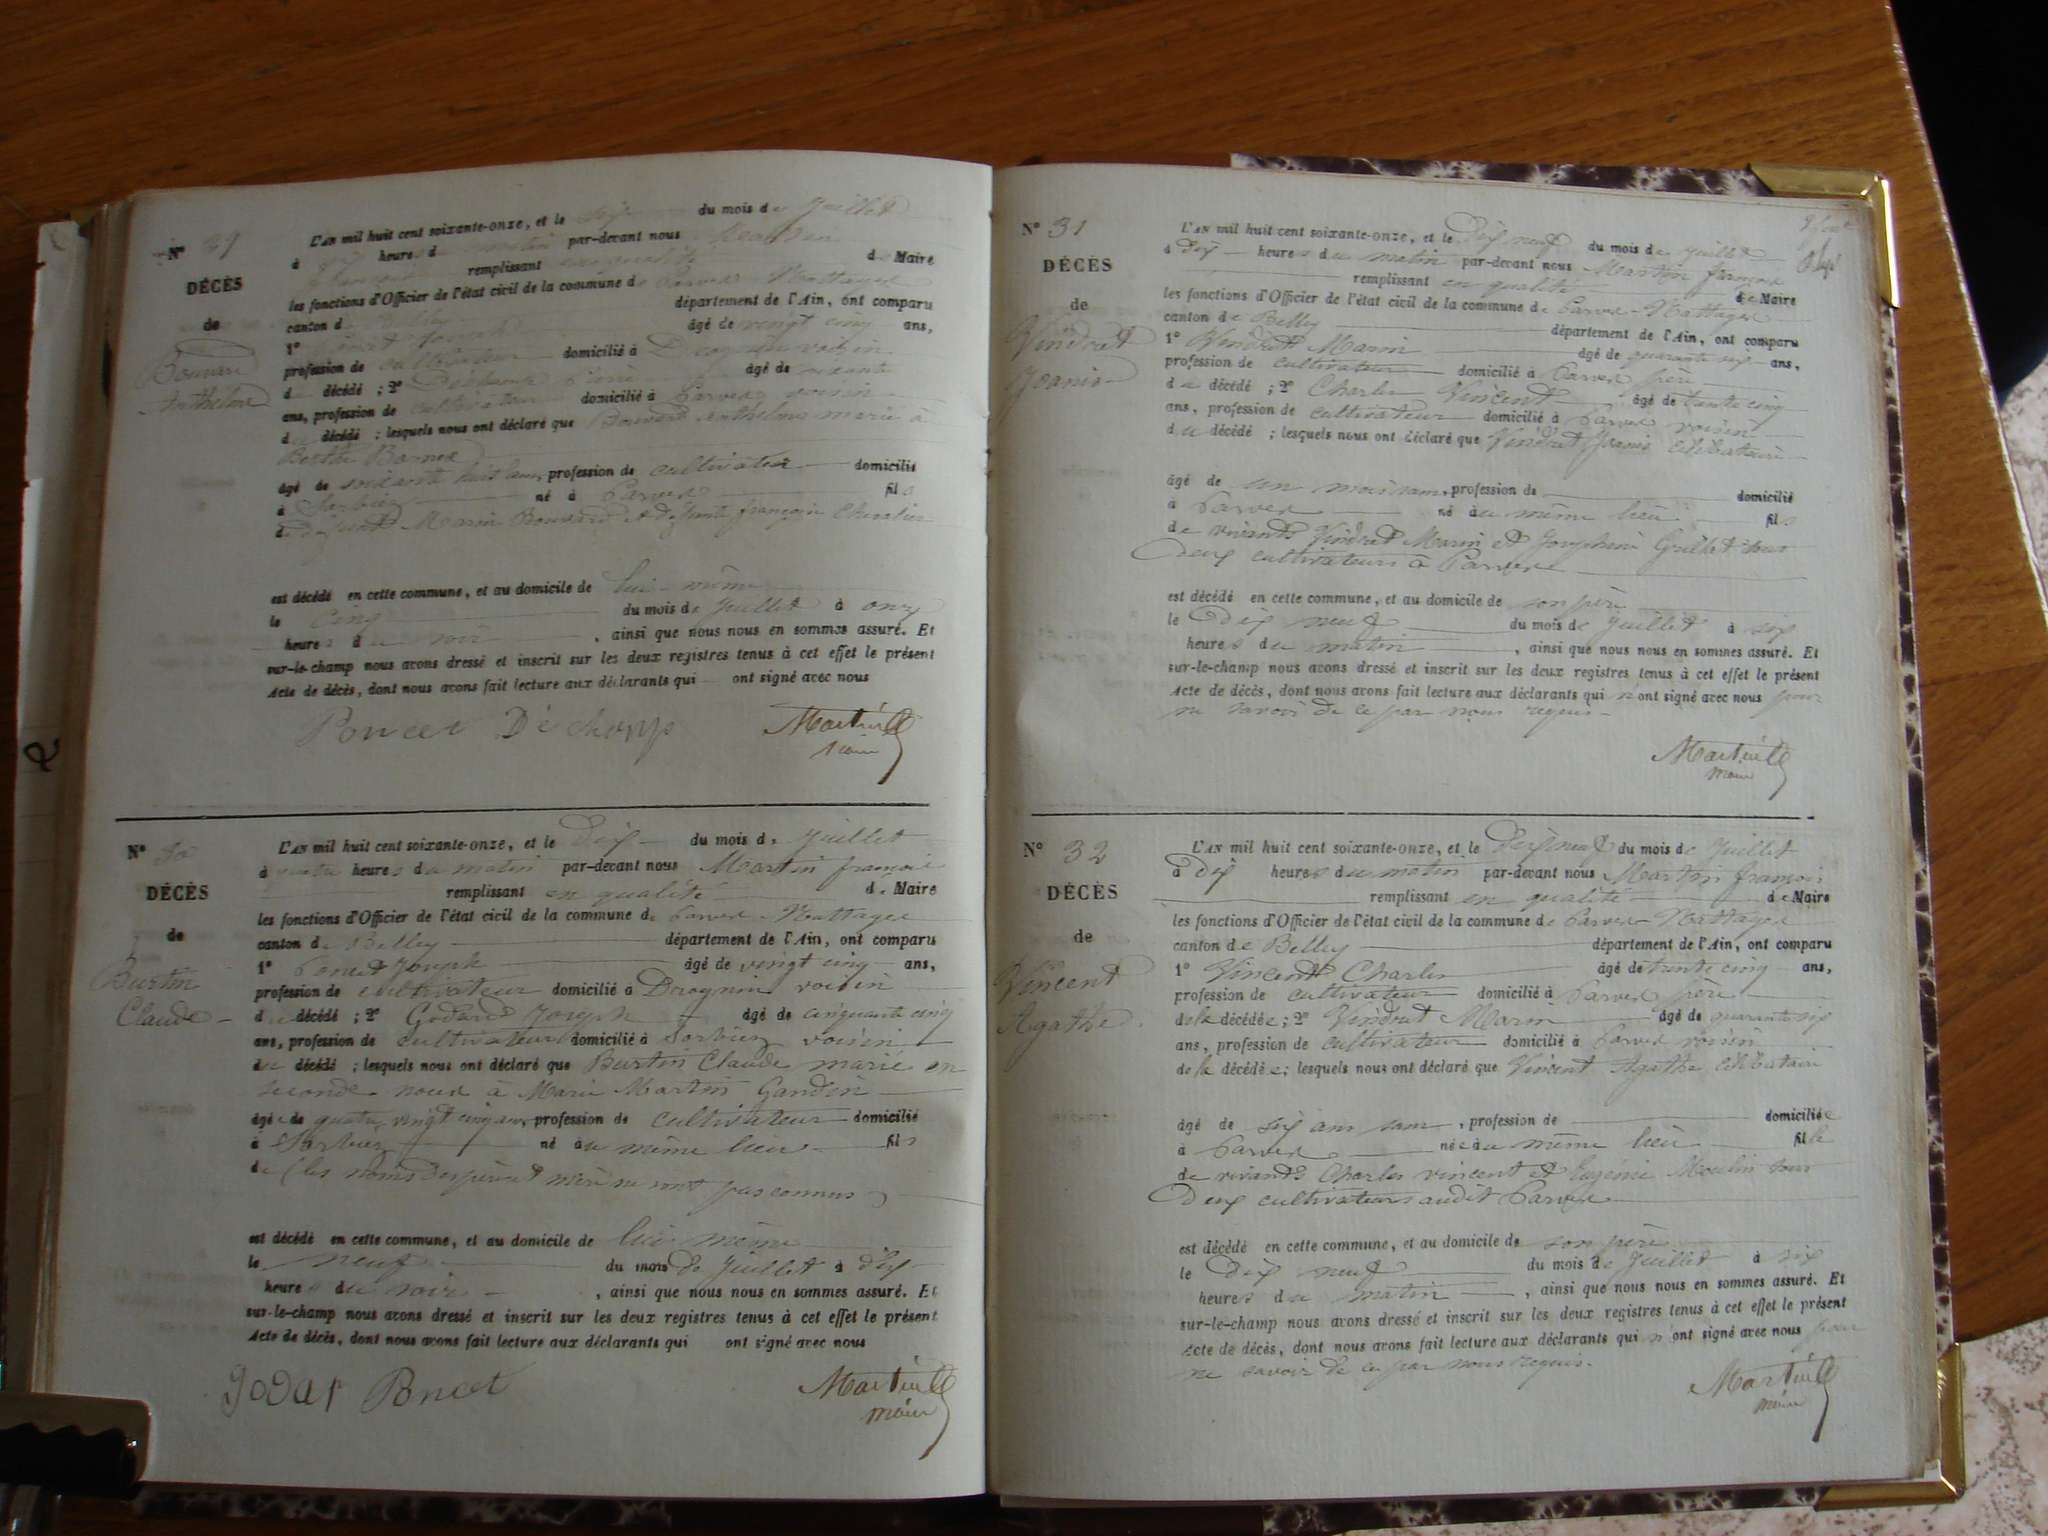 N°
DÉCÈS
de
Bouvard
Anthelme
L'AN mil huit cent soixante-onze, et le six du mois de Juillet
à heures du matin par-devant nous Martin
remplissant de Maire
les fonctions d'Officier de l'état civil de la commune de Parves Nattages
canton de Belley département de l'Ain, ont comparu
1° Poncet âgé de vingt cinq ans,
profession de cultivateur domicilié à voisin
d décédé ; 2° âgé de
ans, profession de cultivateur domicilié à Parves voisin
du décédé ; lesquels nous ont déclaré que Bouvard Anthelme marié à
Berthe
âgé de soixante huit ans, profession de cultivateur domicilié
à Sorbiez né à Parves fils
de défunt Marin Bouvard et défunte françoise Chevalier
est décédé en cette commune, et au domicile de lui-même
le Cinq du mois de Juillet à onze
heures du soir , ainsi que nous nous en sommes assuré. Et
sur-le-champ nous avons dressé et inscrit sur les deux registres tenus à cet effet le présent
Acte de décès, dont nous avons fait lecture aux déclarants qui ont signé avec nous
Poncet Martin
maire
N° 30
DÉCÈS
de
Burtin
Claude
L'AN mil huit cent soixante-onze, et le Dix du mois de Juillet
à quatre heures du matin par-devant nous Martin françois
remplissant en qualité de Maire
les fonctions d'Officier de l'état civil de la commune de Parves Nattages
canton de Belley département de l'Ain, ont comparu
1° Poncet Joseph âgé de vingt cinq ans,
profession de cultivateur domicilié à voisin
du décédé ; 2° Godard Joseph âgé de cinquante cinq
ans, profession de cultivateur domicilié à Sorbiez voisin
du décédé ; lesquels nous ont déclaré que Burtin Claude marié en
seconde noces à Marie Martin Gandin
âgé de quatre vingt cinq ans, profession de cultivateur domicilié
à Sorbiez né au même lieu fils
de (les noms des père et mère ne sont pas connus)
est décédé en cette commune, et au domicile de lui même
le neuf du mois de Juillet à dix
heures du soir , ainsi que nous nous en sommes assuré. Et
sur-le-champ nous avons dressé et inscrit sur les deux registres tenus à cet effet le présent
Acte de décès, dont nous avons fait lecture aux déclarants qui ont signé avec nous
godar Poncet Martin
maire
N° 31
DÉCÈS
de
Vindret
Joanis
L'AN mil huit cent soixante-onze, et le Dix neuf du mois de Juillet
à Dix heures du matin par-devant nous Martin françois
remplissant en qualité de Maire
les fonctions d'Officier de l'état civil de la commune de Parves-Nattages
canton de Belley département de l'Ain, ont comparu
1° Vindret Marin âgé de quarante six ans,
profession de cultivateur domicilié à Parves père
du décédé ; 2° Charles Vincent âgé de trente cinq
ans, profession de cultivateur domicilié à Parves voisin
du décédé ; lesquels nous ont déclaré que Vindret Joanis célibataire
âgé de un mois sans, profession de domicilié
à Parves né au même lieu fils
de vivants Vindret Marin et Josephine Grillet tous
Deux cultivateurs à Parves
est décédé en cette commune, et au domicile de son père
le Dix neuf du mois de Juillet à six
heures du matin , ainsi que nous nous en sommes assuré. Et
sur-le-champ nous avons dressé et inscrit sur les deux registres tenus à cet effet le présent
Acte de décès, dont nous avons fait lecture aux déclarants qui n'ont signé avec nous pour
ne savoir de ce par nous requis.
Martin
maire
N° 32
DÉCÈS
de
Vincent
Agathe
L'AN mil huit cent soixante-onze, et le Dix neuf du mois de Juillet
à Dix heures du matin par-devant nous Martin françois
remplissant en qualité de Maire
les fonctions d'Officier de l'état civil de la commune de Parves Nattages
canton de Belley département de l'Ain, ont comparu
1° Vincent Charles âgé de trente cinq ans,
profession de cultivateur domicilié à Parves père
de la décédée ; 2° Vindret Marin âgé de quarante six
ans, profession de cultivateur domicilié à Parves voisin
de la décédée ; lesquels nous ont déclaré que Vincent Agathe célibataire
âgé de six ans sans , profession de domiciliée
à Parves née au même lieu fille
de vivants Charles vincent et Eugénie Moulin tous
Deux cultivateurs audit Parves
est décédé en cette commune, et au domicile de son père
le Dix neuf du mois de Juillet à six
heures du matin , ainsi que nous nous en sommes assuré. Et
sur-le-champ nous avons dressé et inscrit sur les deux registres tenus à cet effet le présent
Acte de décès, dont nous avons fait lecture aux déclarants qui n'ont signé avec nous pour
ne savoir de ce par nous requis.
Martin
maire